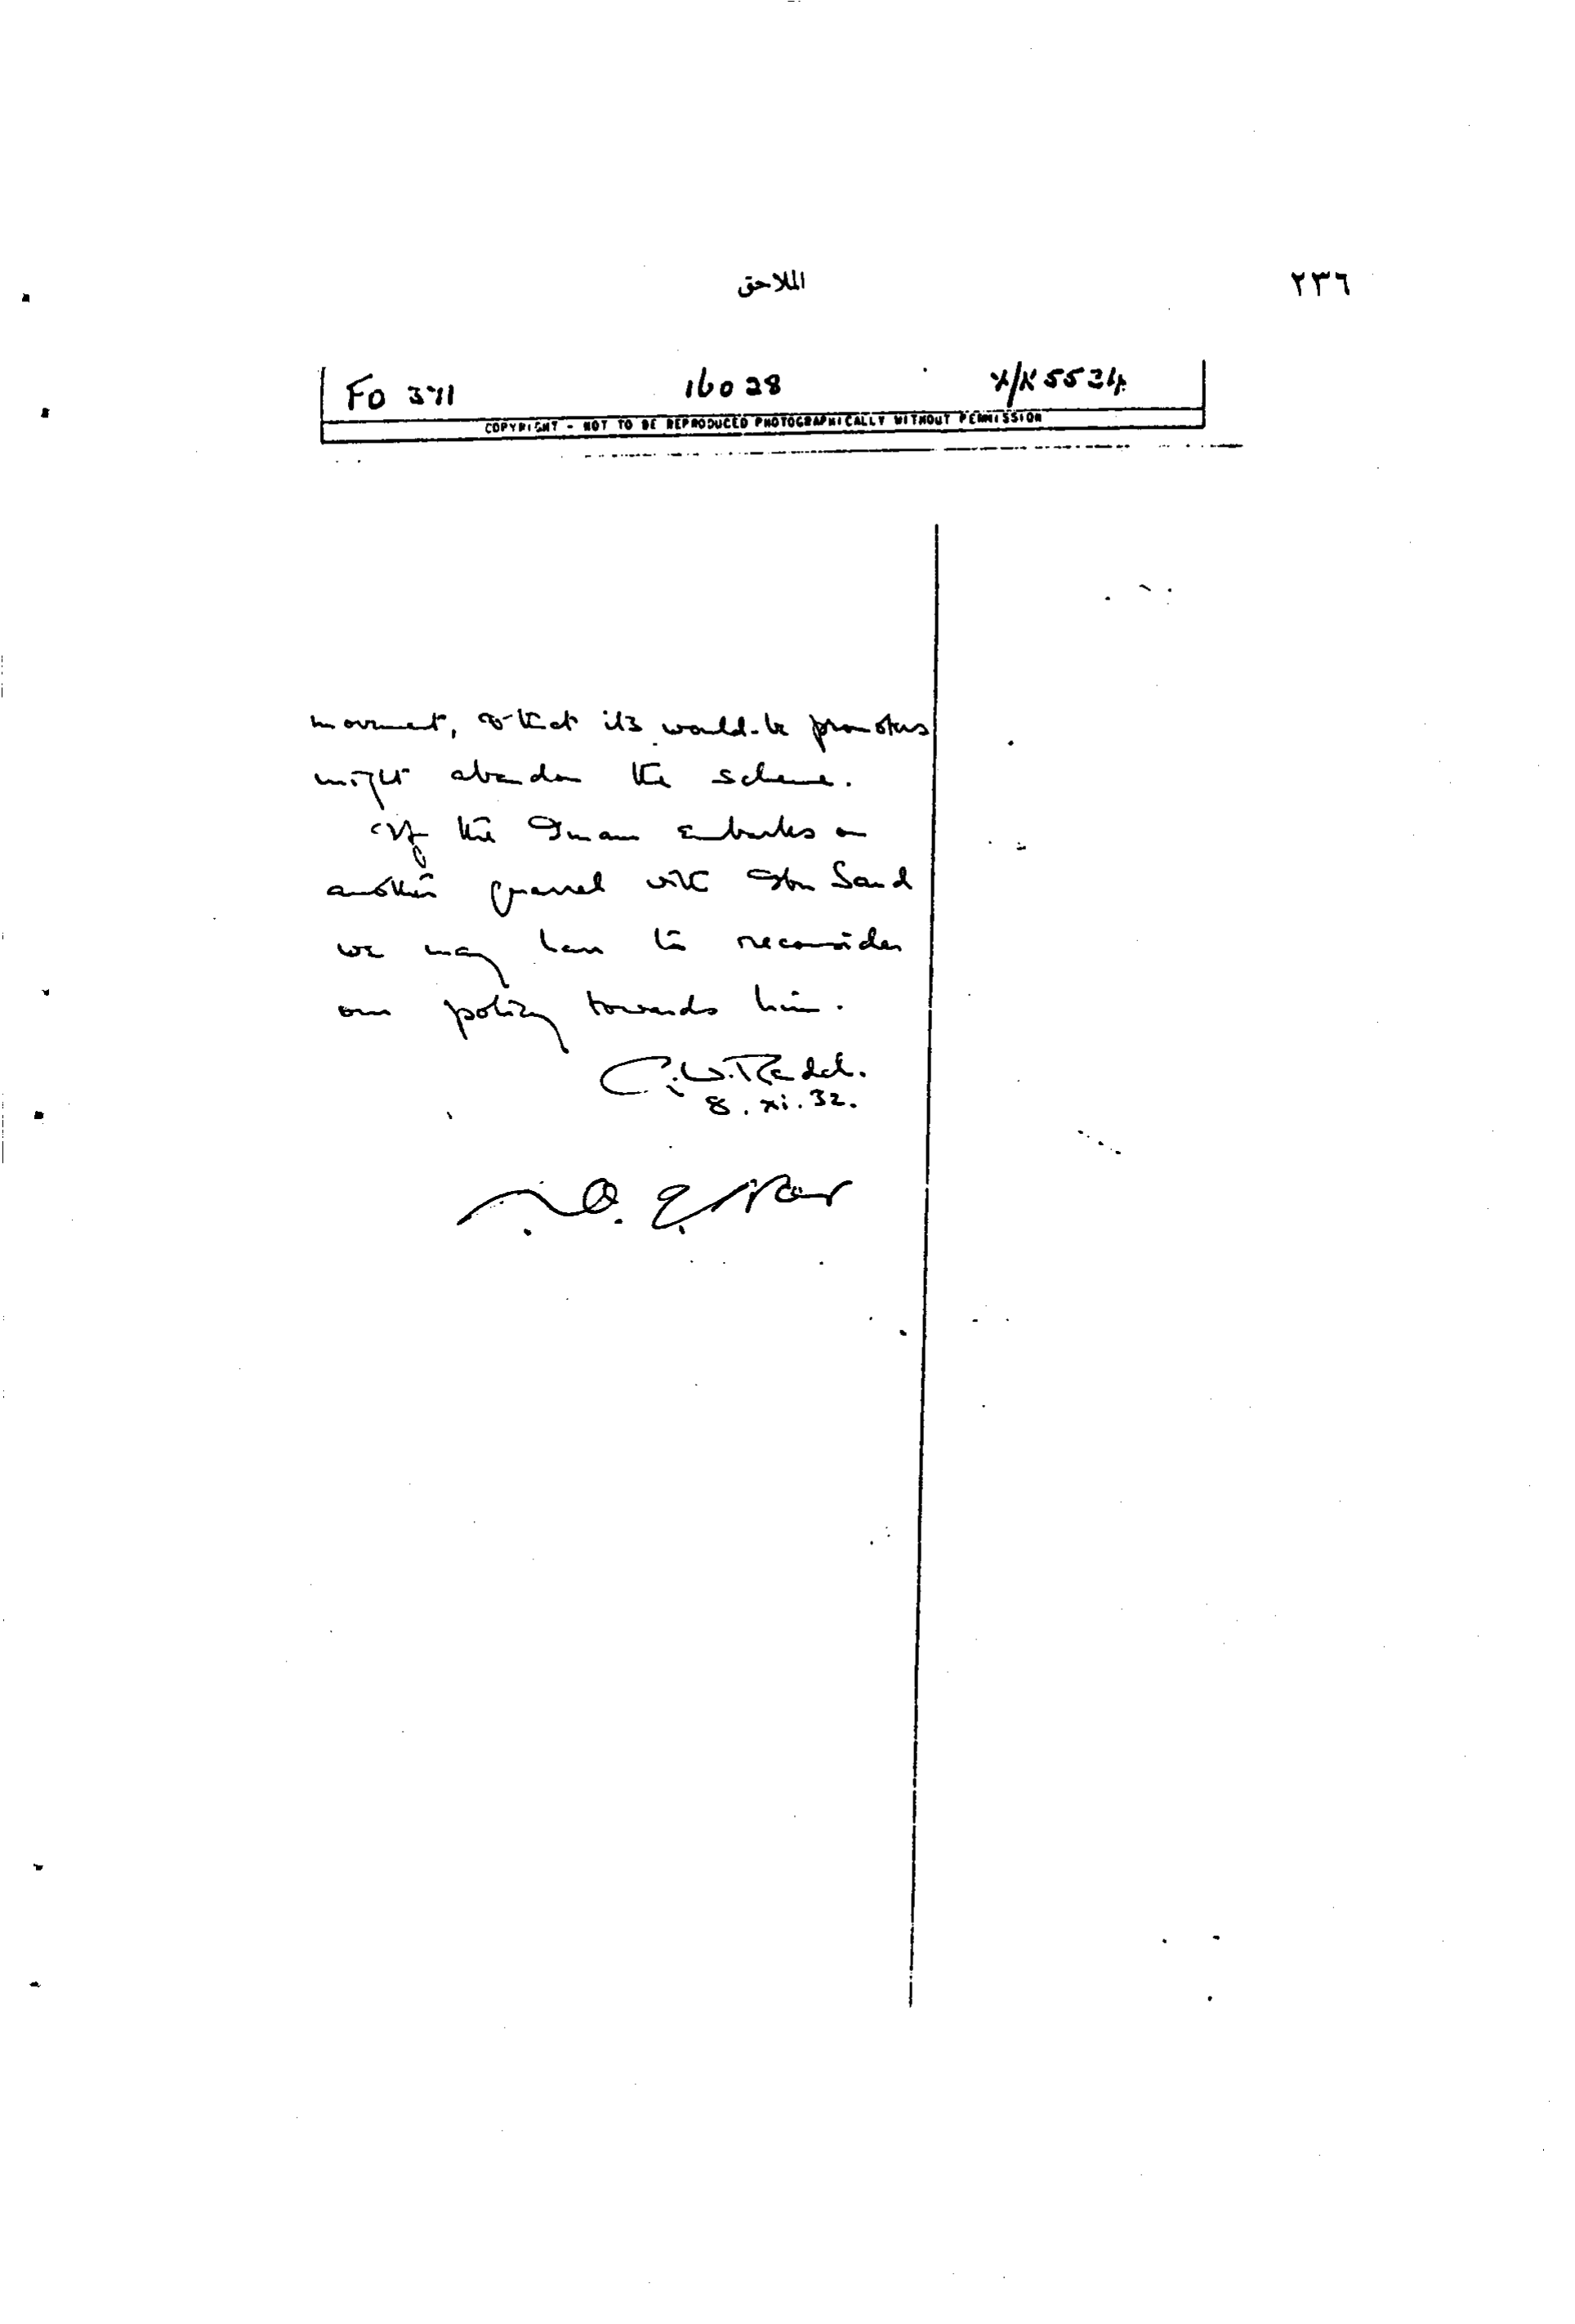 الملاحق ٢٣٦
FO 371 16028
COPYRIGHT - NOT TO BE REPRODUCED PHOTOGRAPHICALLY WITHOUT PERMISSION
movement, so that its would-be promoters
might abandon the scheme.
If the Imam embarks on
another quarrel with Ibn Saud
we may have to reconsider
our policy towards him.
8. xi. 32.